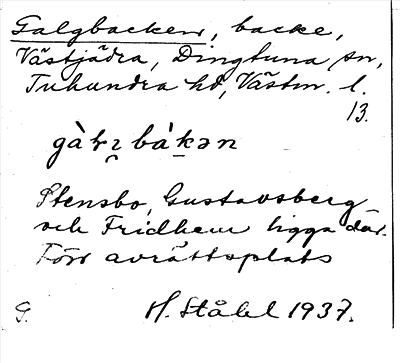 Galgbacken, backe,
Västjädra, Dingtuna sn,
Tuhundra hd, Västm. l.
13.
gàƚɿ̯bàḵən
Stensbo, Gustavsberg
och Fridhem ligga där.
Förr avrättsplats
G. H. Ståhl 1937.